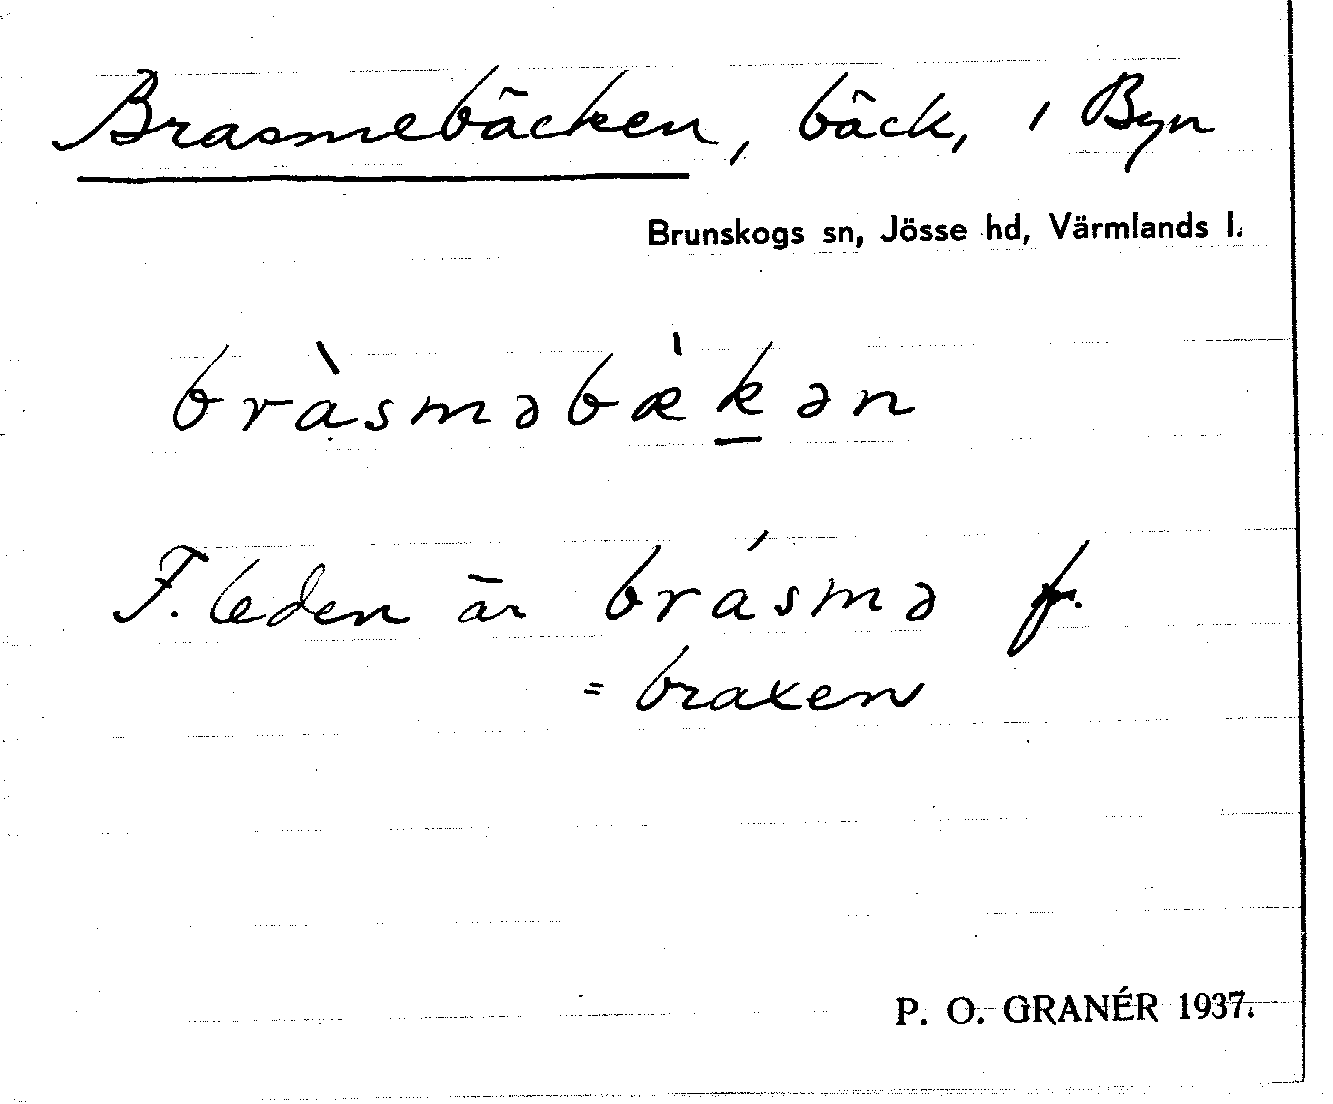 Brasmebäcken, bäck, i Byn
Brunskogs sn, Jösse hd, Värmlands l.
bràsməbæ̀k̲ən
F. leden är brásmə f.
= braxen
P. O. GRANÉR 1937.